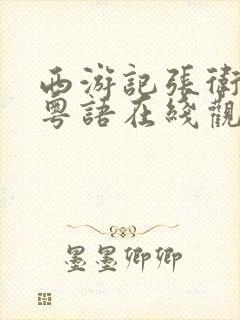 西游記張衛
粵語在綫觀
墨墨卿卿